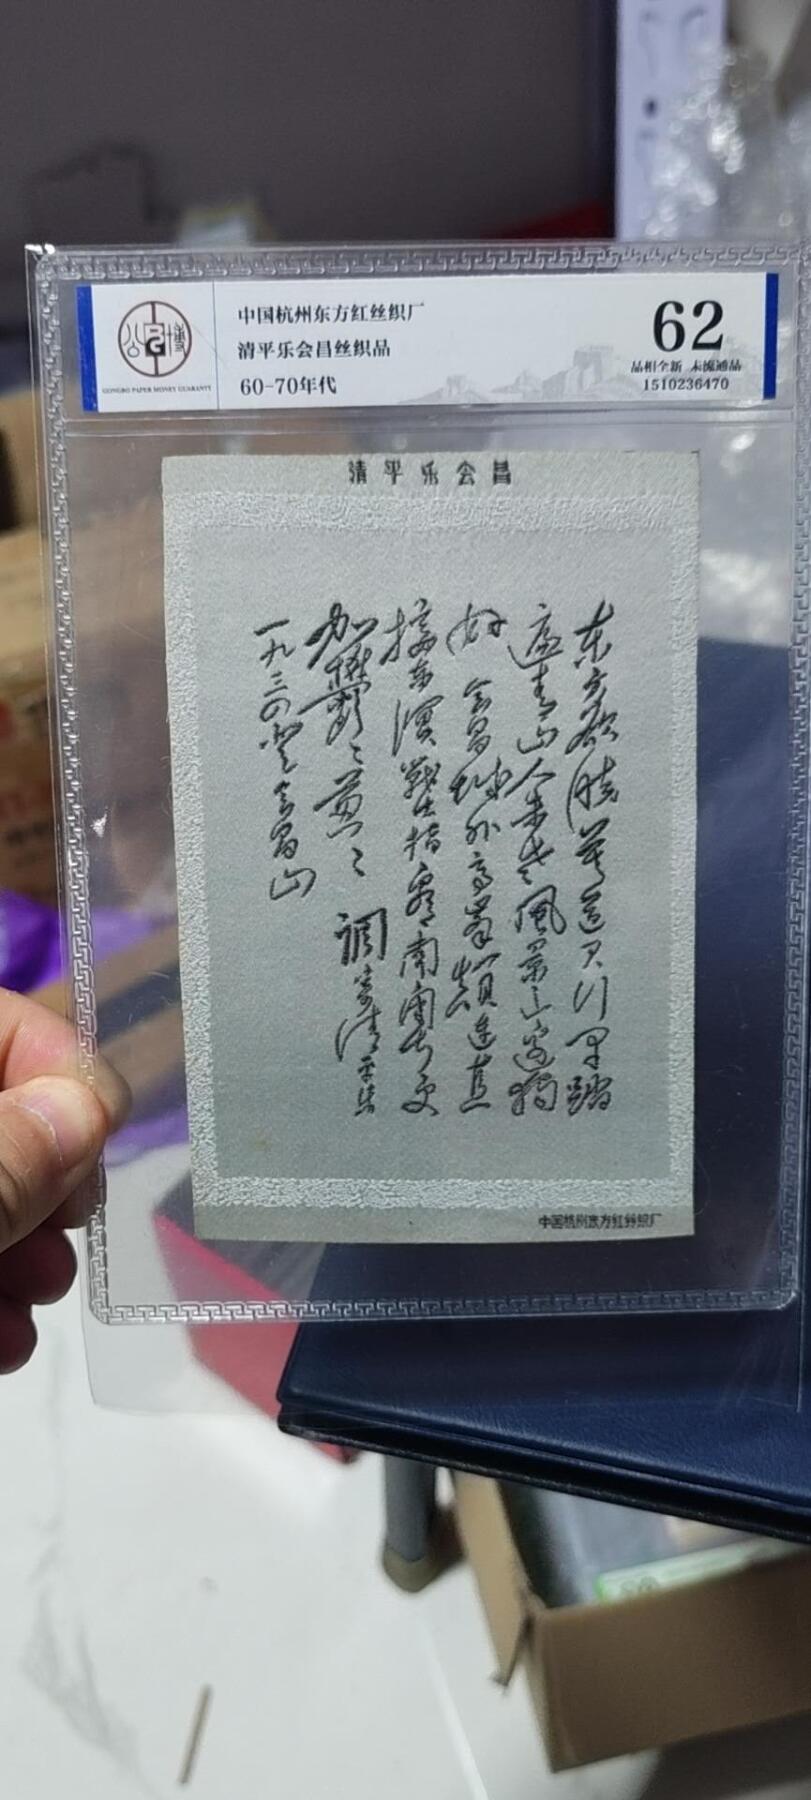 中国杭州东方红丝织厂
清平乐会昌丝织品
60-70年代
公博
GONGBO PAPER MONEY GUARANTY
62
品相全新 未流通品
1510236470
清平乐会昌
东方欲晓莫道君行早踏
遍青山人未老风景这边独
好 会昌城外高峰颠连直
接东溟战士指看南粤更
加郁郁葱葱 调寄清平乐
一九三四登会昌山
中国杭州东方红丝织厂